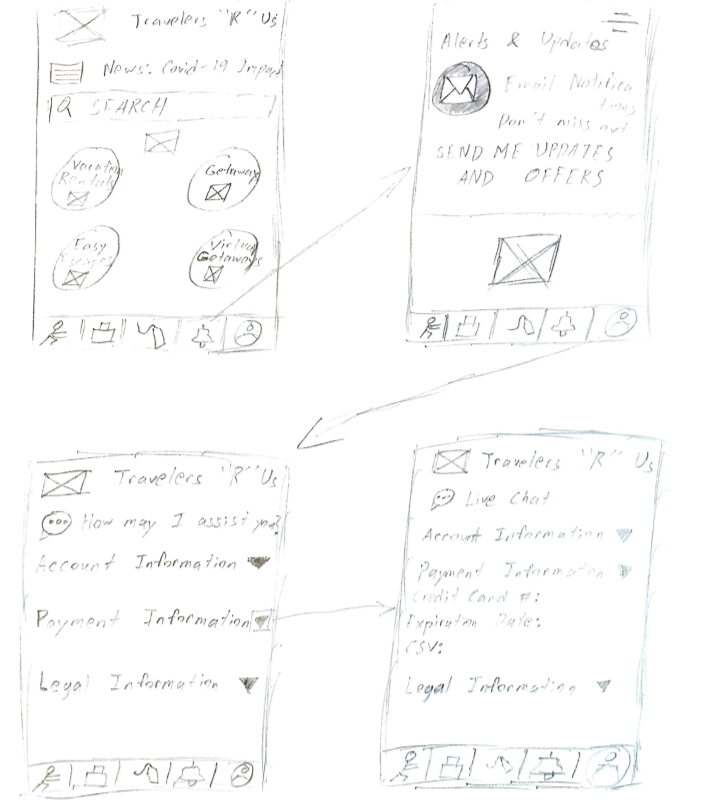 Travelers "R" Us
News: Covid-19 Impact
SEARCH
Vacation
Rentals
Getaways
Easy
Escapes
Virtual
Getaways
Alerts & Updates
Email Notifica
tions
Don't miss out
SEND ME UPDATES
AND OFFERS
Travelers "R" Us
How may I assist you?
Account Information
Payment Information
Legal Information
Travelers "R" Us
Live Chat
Account Information
Payment Information
Credit Card #:
Expiration Date:
CSV:
Legal Information